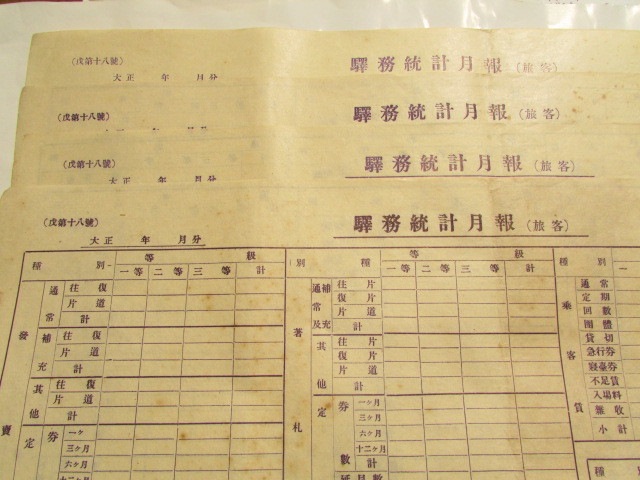 (戊第十八號)
驛務統計月報(旅客)
大正 年 月分
(戊第十八號)
驛務統計月報(旅客)
(戊第十八號)
驛務統計月報(旅客)
大正 年 月分
(戊第十八號)
驛務統計月報(旅客)
大正 年 月分
種別
等級
一等 二等 三等 計
發賣
通常
往復
片道
計
補充
往復
片道
計
其他
往復
片道
計
定
券
一ヶ
三ヶ月
六ヶ月
十二ヶ月
別種
等級
一等 二等 三等 計
著札
通常及補充
往片
復片
片道
計
其他
往片
復片
片道
計
定
券數
一ヶ月
三ヶ月
六ヶ月
十二ヶ月
計
延月數
種別
一
乘客賃
通常
定期
回數
團體
貸切
急行券
寢臺券
不足賃
入場料
雜收
小計
種別